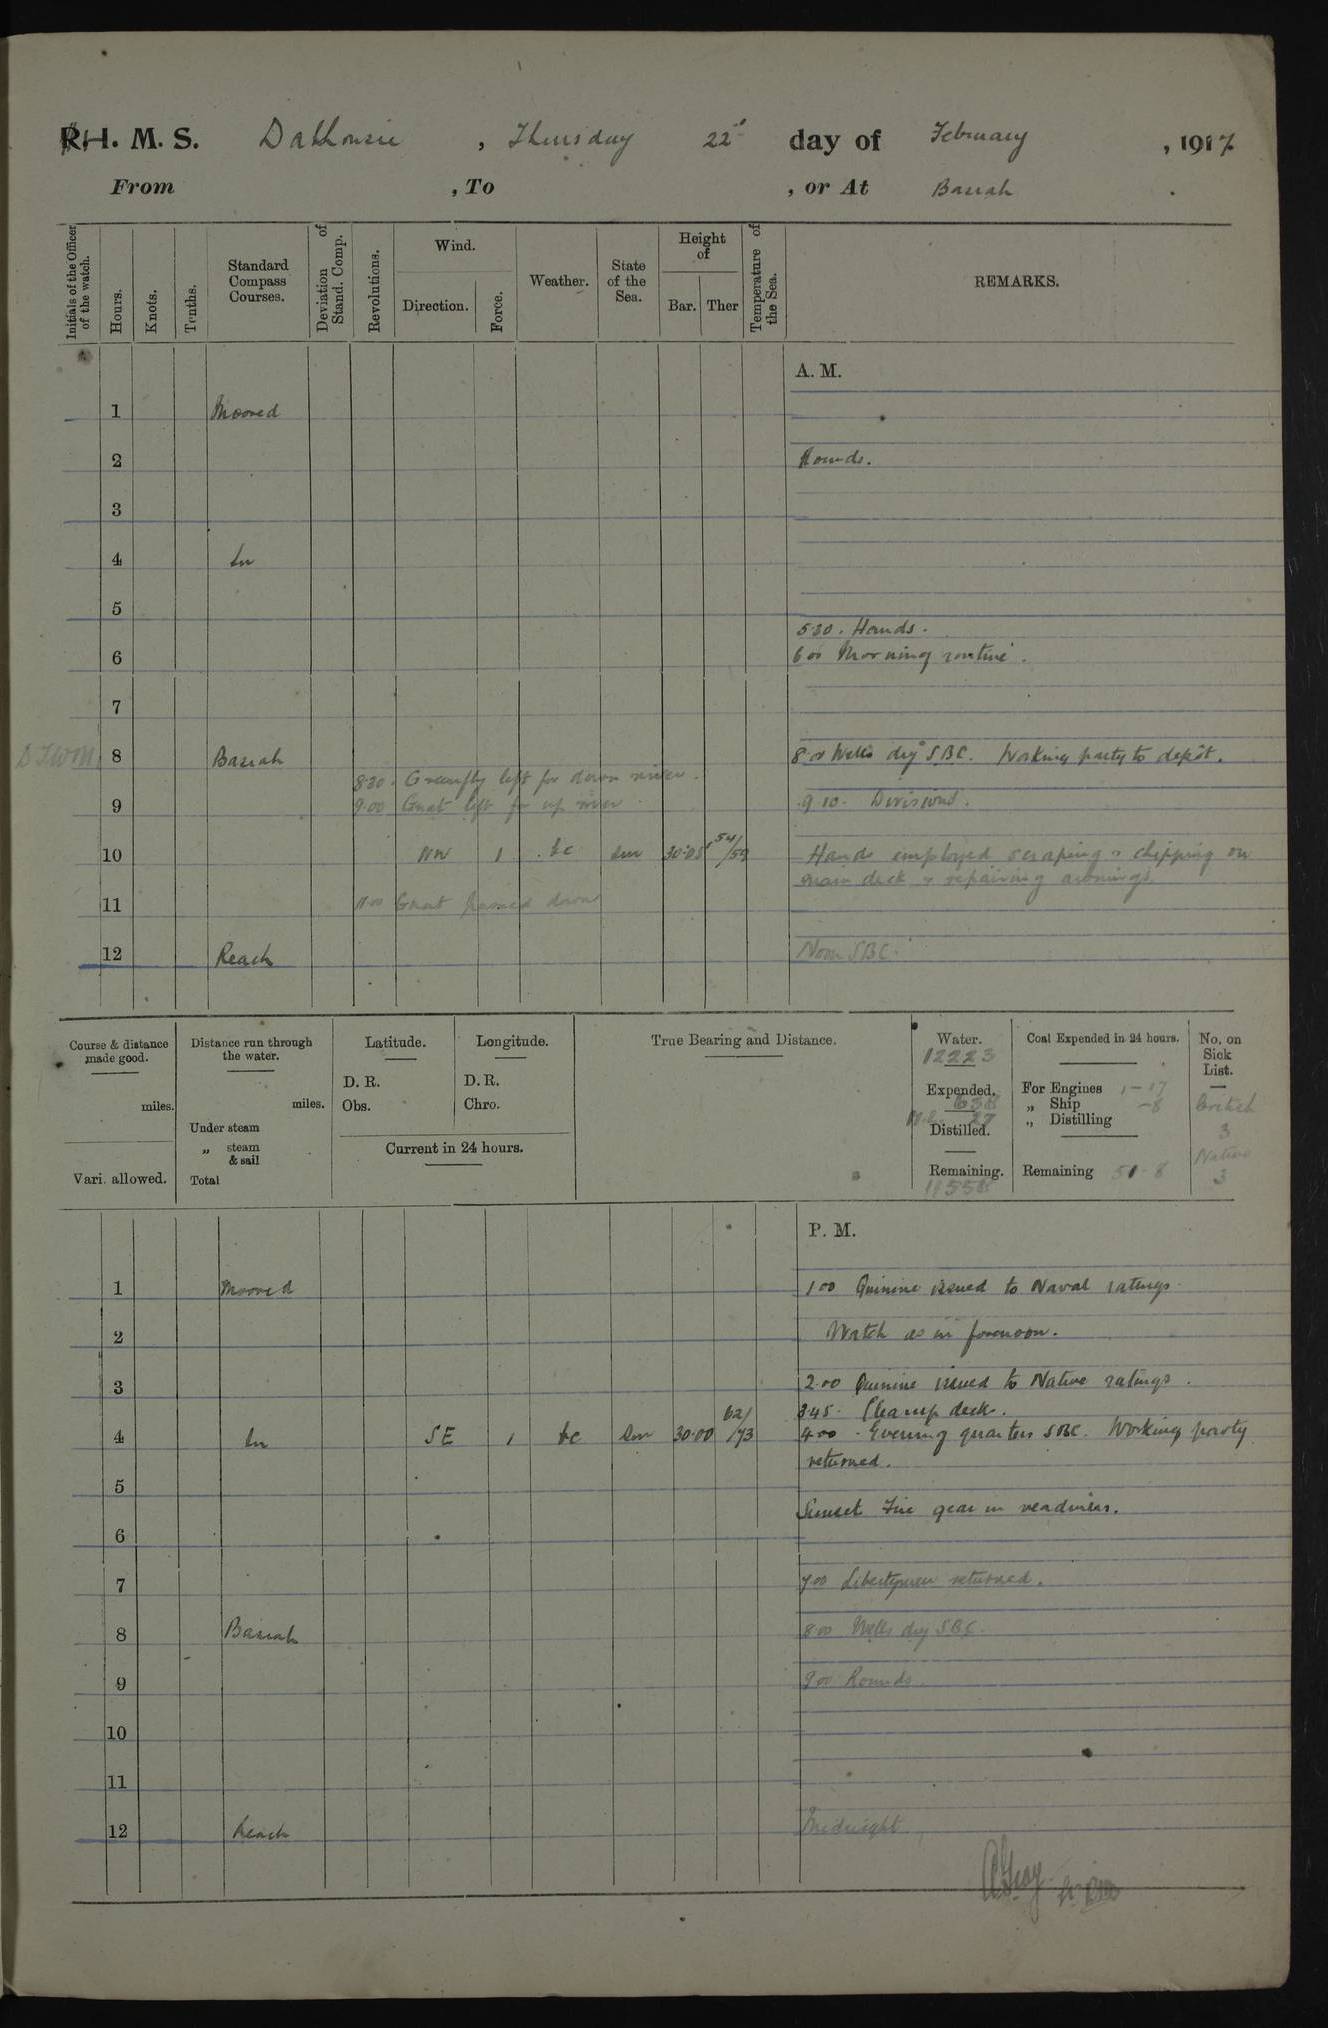 R.H. M. S. Dalhousie, Thursday 22nd day of February, 1917
From , To , or At Basrah.
Initials of the Officer of the watch. Hours. Knots. Tenths. Standard Compass Courses. Deviation of Stand. Comp. Revolutions. Wind. Direction. Force. Weather. State of the Sea. Height of Bar. Ther Temperature of the Sea. REMARKS.
A. M.
1 Moored
2 Rounds.
3
4 In
5
5.30. Hands.
6 6 00 Morning routine.
7
8 Basrah 8.00 Wells dry SBC. Working party to depôt.
8.30. Greenfly left for down river.
9 9.00 Gnat left for up river. 9 10. Divisions.
10 NW 1 bc Sm 30.05 54/59 Hands employed scraping & chipping on
main deck & repairing awnings.
11 11.00 Gnat passed down
12 Reach Noon SBC.
Course & distance made good. miles. Vari. allowed.
Distance run through the water. miles. Under steam „ steam & sail Total
Latitude. D. R. Obs. Longitude. D. R. Chro. Current in 24 hours.
True Bearing and Distance.
Water. 12223 Expended. 638 27 Distilled. Remaining. 11558
Coal Expended in 24 hours. For Engines 1-17 „ Ship -8 „ Distilling Remaining 51-8
No. on Sick List. British 3 Native 3
P. M.
1 Moored 1 00 Quinine issued to Naval ratings.
2 Watch as in forenoon.
3 2.00 Quinine issued to Native ratings.
3.45. Clear up deck.
4 In SE 1 bc Sm 30.00 62/73 4.00. Evening quarters SBC. Working party
returned.
5
Sunset Fire gear in readiness.
6
7 7.00 Libertymen returned.
8 Basrah 8.00 Wells dry SBC.
9 9.00 Rounds.
10
11
12 Reach Midnight
AGray